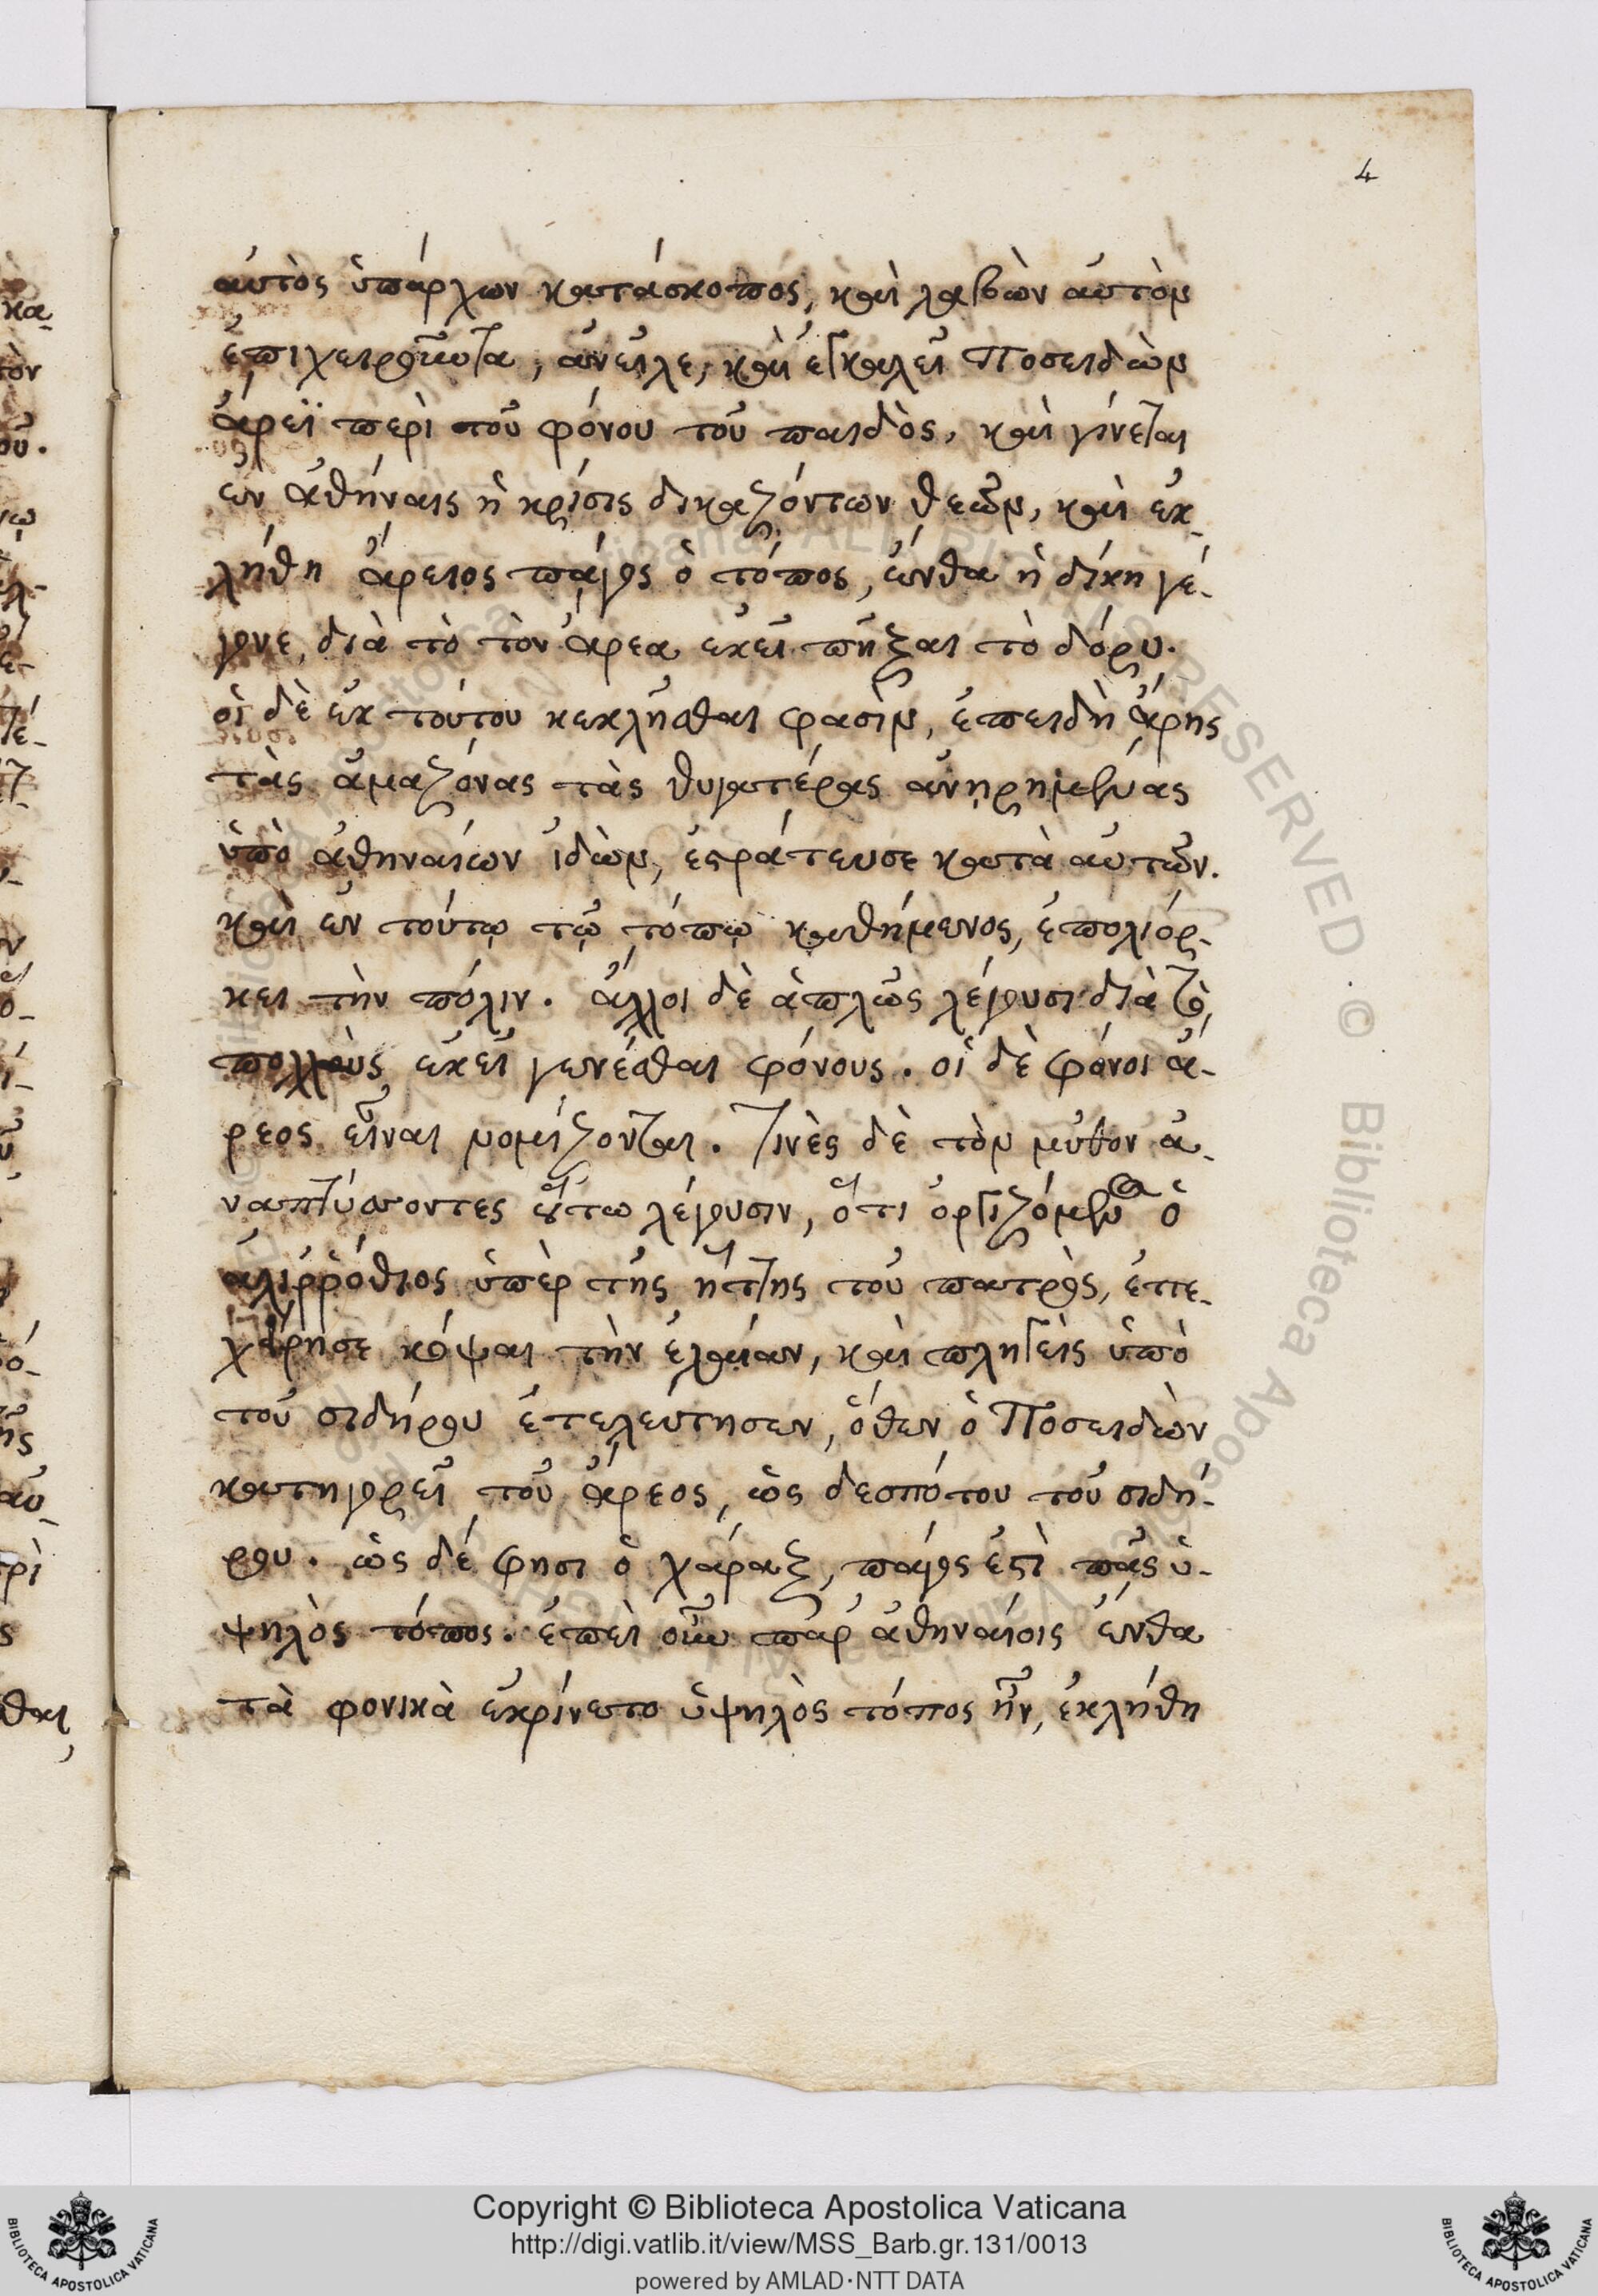 4
αὐτὸς ὑπάρχων κατάσκοπος, καὶ λαβὼν αὐτὸν
ἐπιχειροῦντα, ἀνεῖλε, καὶ ἐγκαλεῖ Ποσειδὼν
ἄρεϊ περὶ τοῦ φόνου τοῦ παιδὸς, καὶ γίνεται
ἐν ἀθήναις ἡ κρίσις δικαζόντων θεῶν, καὶ ἐκ-
λήθη ἄρειος πάγος ὁ τόπος, ἔνθα ἡ δίκη γέ-
γονε, διὰ τὸ τὸν ἄρεα ἐκεῖ πῆξαι τὸ δόρυ.
οἱ δὲ ἐκ τούτου κεκλῆσθαι φασὶν, ἐπειδὴ ἄρης
τὰς ἀμαζόνας τὰς θυγατέρας ἀνῃρημένας
ὑπὸ ἀθηναίων ἰδὼν, ἐστράτευσε κατὰ αὐτῶν.
καὶ ἐν τούτῳ τῷ τόπῳ καθήμενος, ἐπολιόρ-
κει τὴν πόλιν. ἄλλοι δὲ ἁπλῶς λέγουσι διὰ τὸ
πολλοὺς ἐκεῖ γενέσθαι φόνους. οἱ δὲ φόνοι ἄ-
ρεος εἶναι νομίζονται. τινὲς δὲ τὸν μῦθον ἀ-
ναπτύσσοντες οὕτω λέγουσιν, ὅτι ὀργιζόμενος ὁ
ἁλιῤῥόθιος ὑπὲρ τῆς ἥττης τοῦ πατρὸς, ἐπε-
χείρησε κόψαι τὴν ἐλαίαν, καὶ πληγεὶς ὑπὸ
τοῦ σιδήρου ἐτελεύτησεν, ὅθεν ὁ Ποσειδὼν
κατηγορεῖ τοῦ ἄρεος, ὡς δεσπότου τοῦ σιδή-
ρου. ὡς δέ φησι ὁ χάραξ, πάγος ἐστὶ πᾶς ὑ-
ψηλὸς τόπος. ἐπεὶ οὖν παρ' ἀθηναίοις ἔνθα
τὰ φονικὰ ἐκρίνετο ὑψηλὸς τόπος ἦν, ἐκλήθη
Copyright © Biblioteca Apostolica Vaticana
http://digi.vatlib.it/view/MSS_Barb.gr.131/0013
powered by AMLAD·NTT DATA